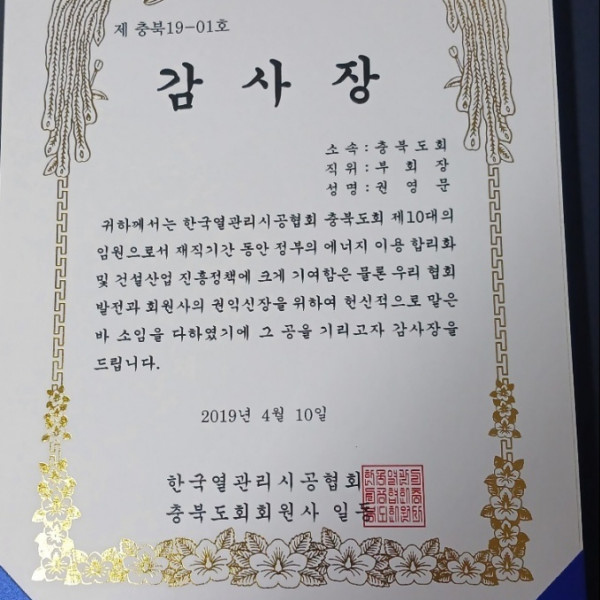 제 충북19-01호
감 사 장
소 속 : 충 북 도 회
직 위 : 부 회 장
성 명 : 권 영 문
귀하께서는 한국열관리시공협회 충북도회 제10대의
임원으로서 재직기간 동안 정부의 에너지 이용 합리화
및 건설산업 진흥정책에 크게 기여함은 물론 우리 협회
발전과 회원사의 권익신장을 위하여 헌신적으로 맡은
바 소임을 다하였기에 그 공을 기리고자 감사장을
드립니다.
2019년 4월 10일
한국열관리시공협회
충북도회회원사 일동